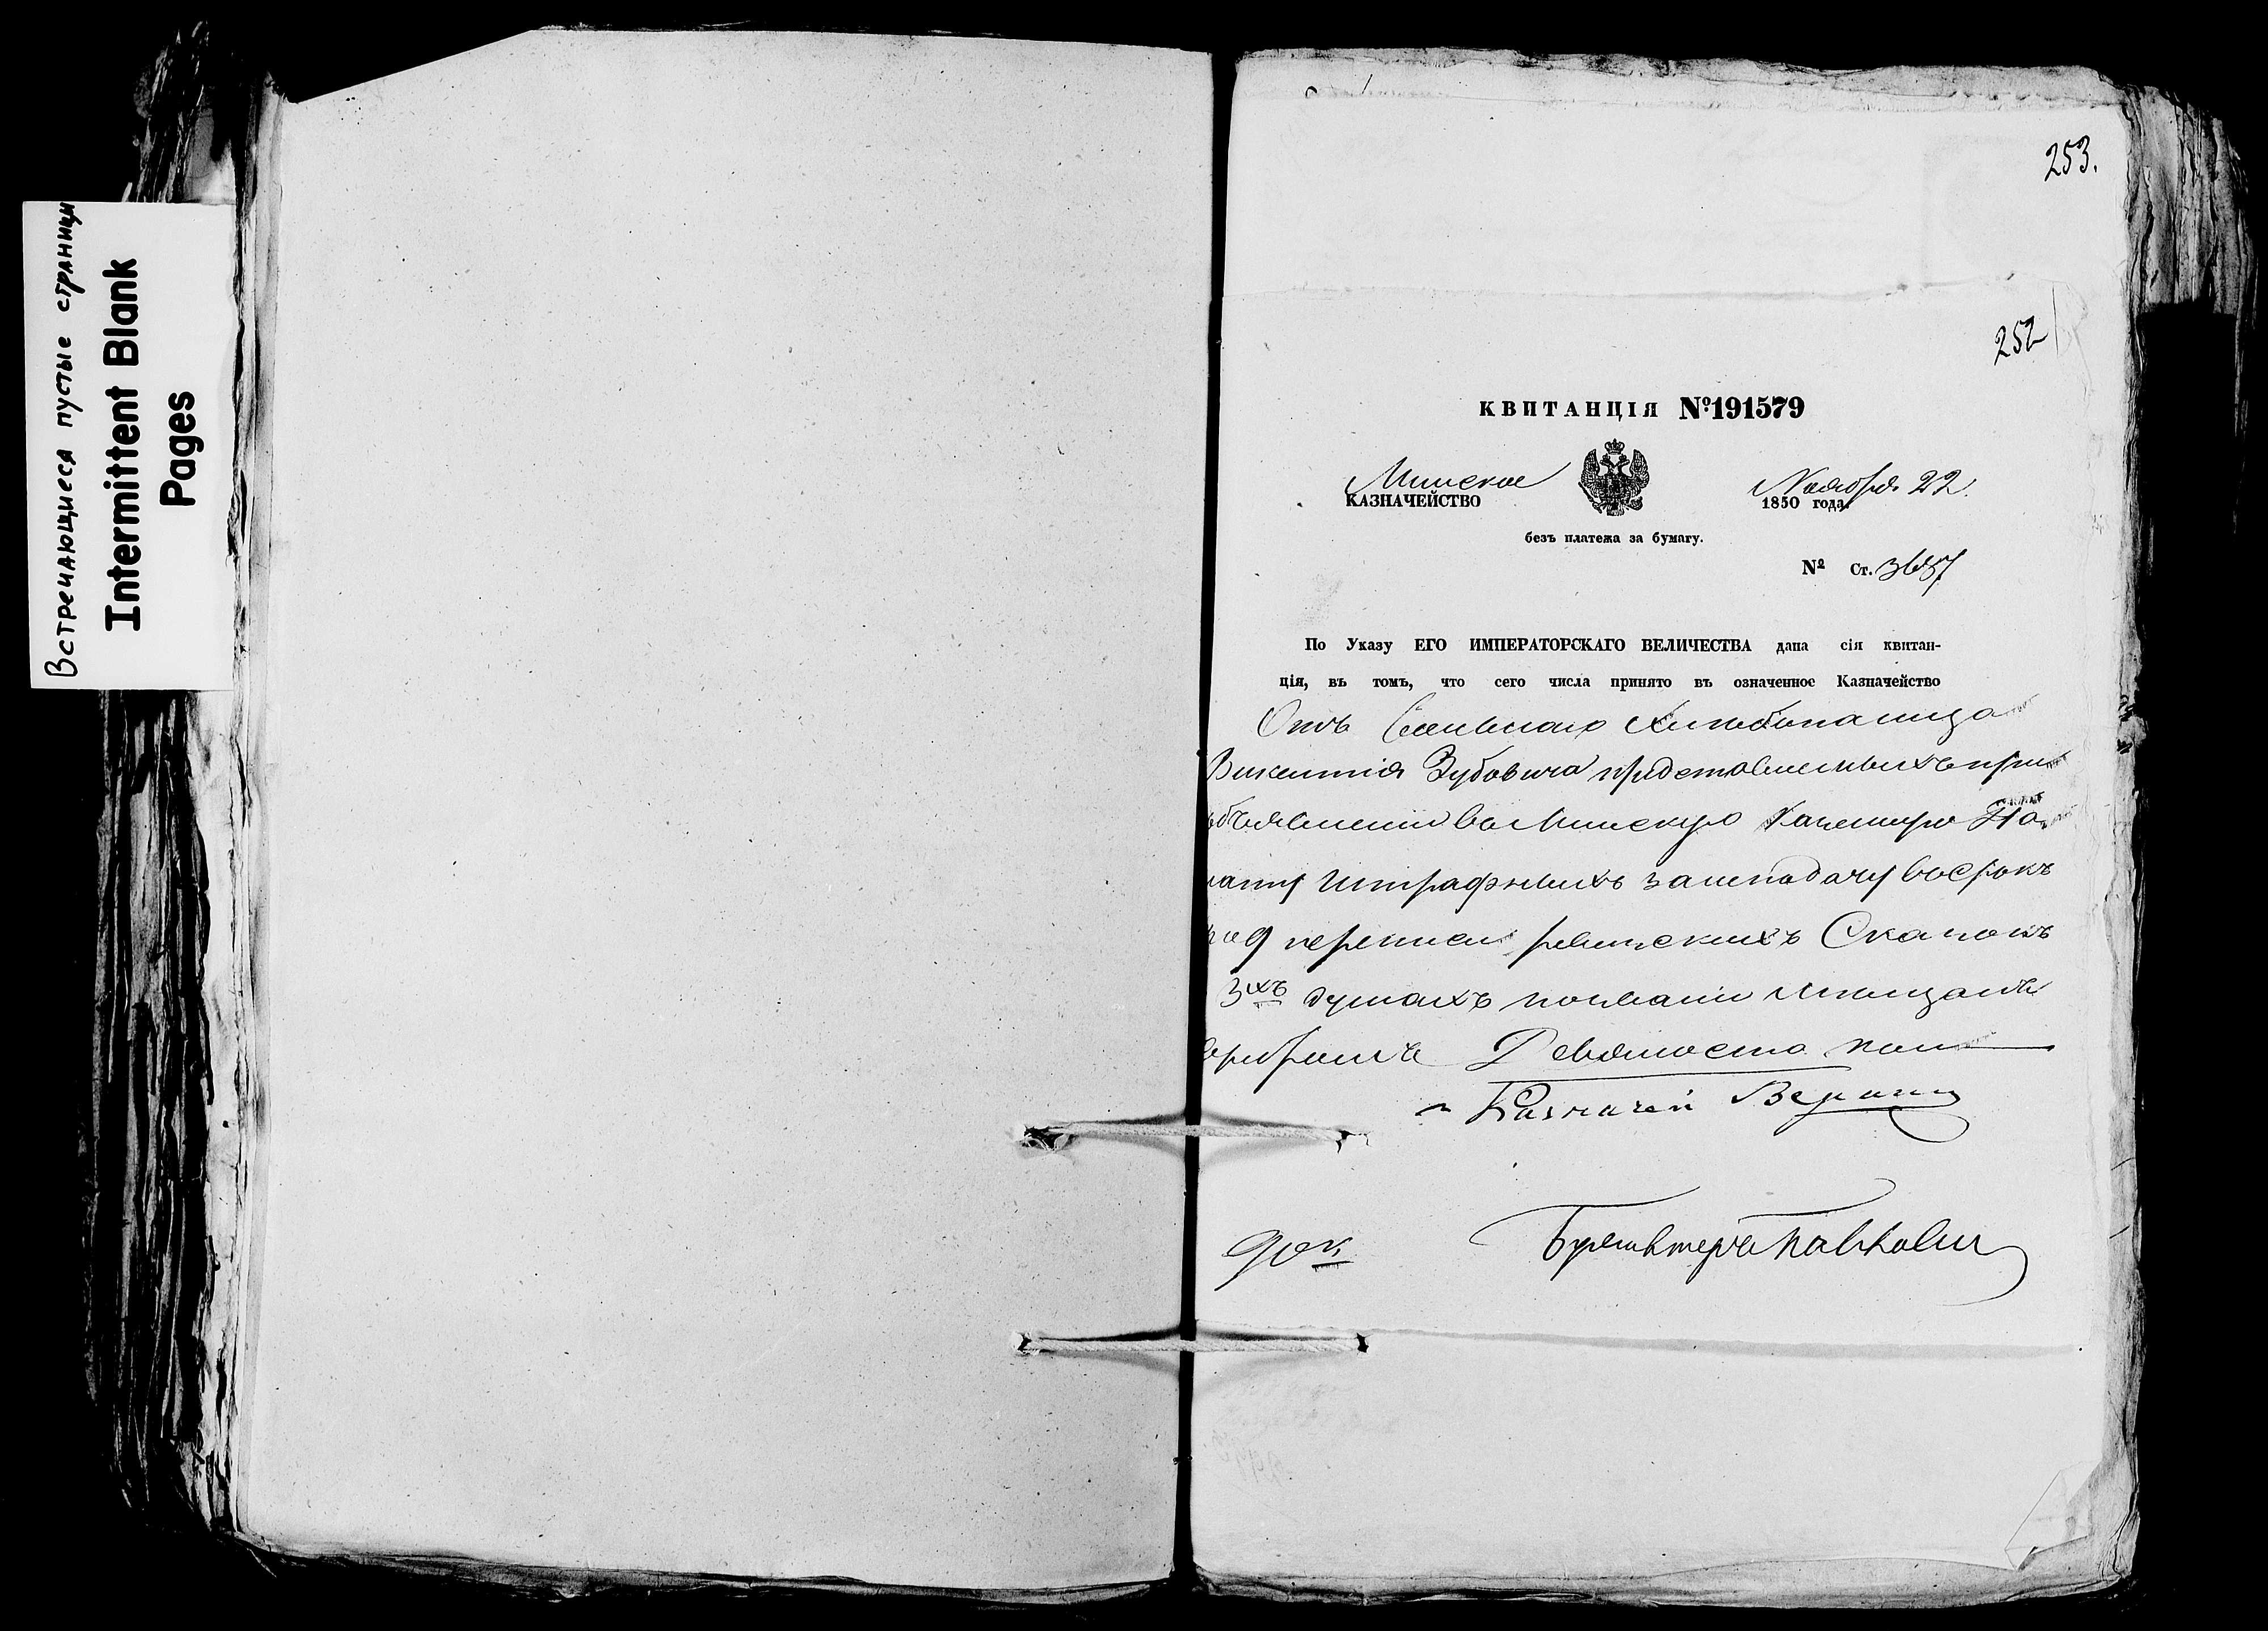 Встречающиеся пустые страницы
Intermittent Blank
Pages
253.
252
КВИТАНЦІЯ №191579
Минское
КАЗНАЧЕЙСТВО
Ноября 22.
1850 года
безъ платежа за бумагу.
№ Ст. 3657
По Указу ЕГО ИМПЕРАТОРСКАГО ВЕЛИЧЕСТВА дана сія квитан-
ція, въ томъ, что сего числа принято въ означенное Казначейство
Отъ
Викентія Зубовича представленныхъ при
объявленіи въ Минскую Казенную Па-
лату Штрафныхъ за неподачу въ срокъ
по 9 переписи ревизскихъ Сказокъ
3хъ душахъ
серебромъ Девяносто коп
Казначей
90 к.
Бухгалтеръ